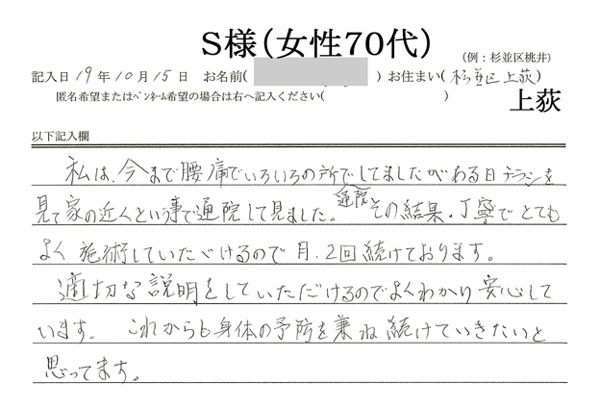 S様（女性70代）
（例：杉並区桃井）
記入日 19年 10月 15日 お名前（ ）お住まい（杉並区上荻）
匿名希望またはペンネーム希望の場合は右へ記入ください（ ）
上荻
以下記入欄
私は、今まで腰痛でいろいろの所でしてましたがある日チラシを
見て家の近くという事で通院して見ました。通院その結果、丁寧でとても
よく施術していただけるので月、2回続けております。
適切な説明をしていただけるのでよくわかり安心して
います。 これからも身体の予防を兼ね続けていきたいと
思ってます。